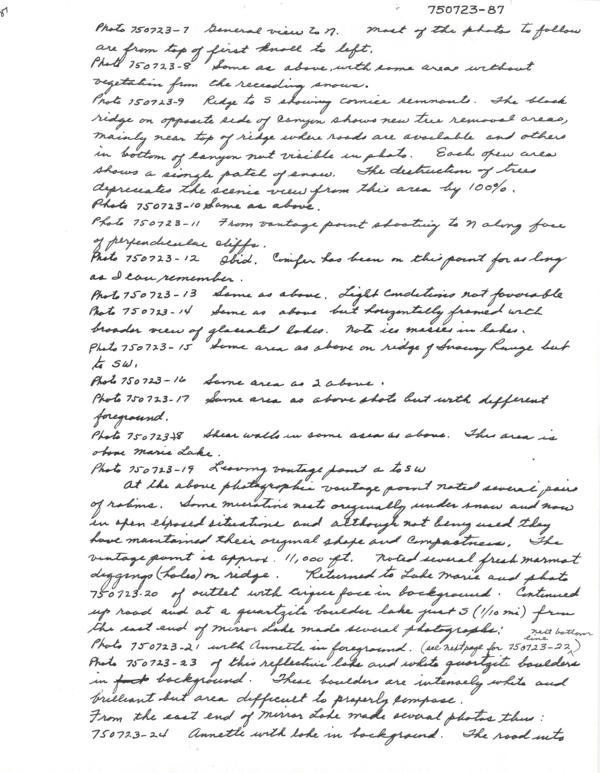 750723-87
Photo 750723-7 General view to N. Most of the photos to follow
are from top of first knoll to left.
Photo 750723-8 Same as above, with some areas without
vegetation from the receeding snows.
Photo 750723-9 Ridge to S showing cornice remnants. The black
ridge on opposite side of canyon shows new tree removal areas,
mainly near top of ridge where roads are available and others
in bottom of canyon not visible in photo. Each open area
shows a single patch of snow. The destruction of trees
depreciates the scenic view from this area by 100%.
Photo 750723-10 Same as above.
Photo 750723-11 From vantage point shooting to N along face
of perpendicular cliffs.
Photo 750723-12 Ibid. Conifer has been on this point for as long
as I can remember.
Photo 750723-13 Same as above. Light conditions not favorable
Photo 750723-14 Same as above but horizontally framed with
broader view of glaciated lakes. Note ice masses in lakes.
Photo 750723-15 Same area as above on ridge of Snowy Range but
to SW.
Photo 750723-16 Same area as 2 above.
Photo 750723-17 Same area as above shots but with different
foreground.
Photo 750723-18 Shear walls in same area as above. This area is
above Marie Lake.
Photo 750723-19 Leaving vantage point a to SW
At the above photographic vantage point noted several pairs
of robins. Some microtine nests originally under snow and now
in open exposed situations and although not being used they
have maintained their original shape and compactness. The
vantage point is approx. 11,000 ft. Noted several fresh marmot
diggings (holes) on ridge. Returned to Lake Marie and photo
750723-20 of outlet with cirque face in background. Continued
up road and at a quartzite boulder lake just S (1/10 mi) from
the east end of Mirror Lake made several photographs:
Photo 750723-21 with Annette in foreground. (see next page for 750723-22) next bottom line
Photo 750723-23 of this reflective lake and white quartzite boulders
in background. These boulders are intensely white and
brilliant but area difficult to properly compose.
From the east end of Mirror Lake made several photos thus:
750723-24 Annette with lake in background. The road into